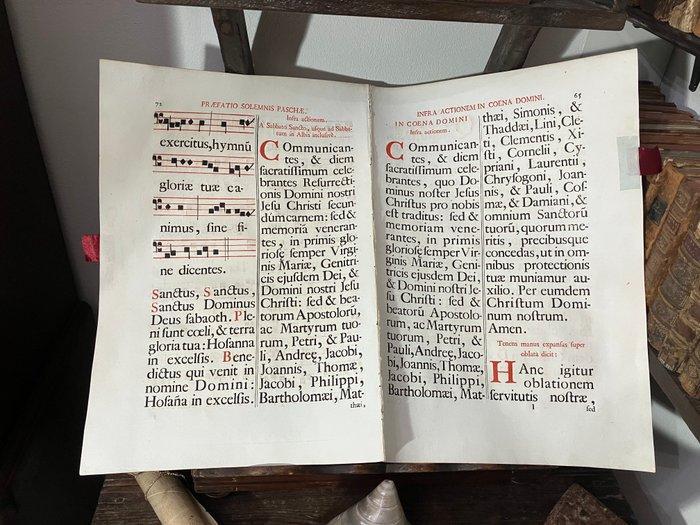 72
PRÆFATIO SOLEMNIS PASCHÆ.
exercitus, hymnũ
gloriæ tuæ ca-
nimus, ſine fi-
ne dicentes.
Sanctus, Sanctus,
Sanctus Dominus
Deus ſabaoth. Ple-
ni ſunt cœli, & terra
gloria tua: Hoſanna
in excelſis. Bene-
dictus qui venit in
nomine Domini:
Hoſãna in excelſis.
Infra actionem.
A Sabbato Sancto, uſque ad Sabba-
tum in Albis incluſivè.
COmmunican-
tes, & diem
ſacratiſſimum cele-
brantes Reſurrecti-
onis Domini noſtri
Jeſu Chriſti ſecun-
dùm carnem: ſed &
memoriã veneran-
tes, in primis glo-
rioſæ ſemper Virgi-
nis Mariæ, Genitri-
cis ejuſdem Dei, &
Domini noſtri Jeſu
Chriſti: ſed & bea-
torum Apoſtolorũ,
ac Martyrum tuo-
rum, Petri, & Pau-
li, Andreę, Jacobi,
Joannis, Thomæ,
Jacobi, Philippi,
Bartholomæi, Mat-
thæi,
INFRA ACTIONEM IN COENA DOMINI.
65
IN COENA DOMINI
Infra actionem.
COmmunican-
tes, & diem
ſacratiſſimum cele-
brantes, quo Do-
minus noſter Jeſus
Chriſtus pro nobis
eſt traditus: ſed &
memoriam vene-
rantes, in primis
glorioſę ſemper Vir-
ginis Mariæ, Geni-
tricis ejuſdem Dei,
& Domini noſtri Je-
ſu Chriſti: ſed &
beatorũ Apoſtolo-
rum, ac Martyrum
tuorum, Petri, &
Pauli, Andreę, Jaco-
bi, Joannis, Thomæ,
Jacobi, Philippi,
Bartholomæi, Mat-
thæi, Simonis, &
Thaddæi, Lini, Cle-
ti, Clementis, Xi-
ſti, Cornelii, Cy-
priani, Laurentii,
Chryſogoni, Joan-
nis, & Pauli, Coſ-
mæ, & Damiani, &
omnium Sanctorũ
tuorũ, quorum me-
ritis, precibusque
concedas, ut in om-
nibus protectionis
tuæ muniamur au-
xilio. Per eumdem
Chriſtum Domi-
num noſtrum.
Amen.
Tenens manus expanſas ſuper
oblata dicit:
HAnc igitur
oblationem
ſervitutis noſtræ,
I
ſed